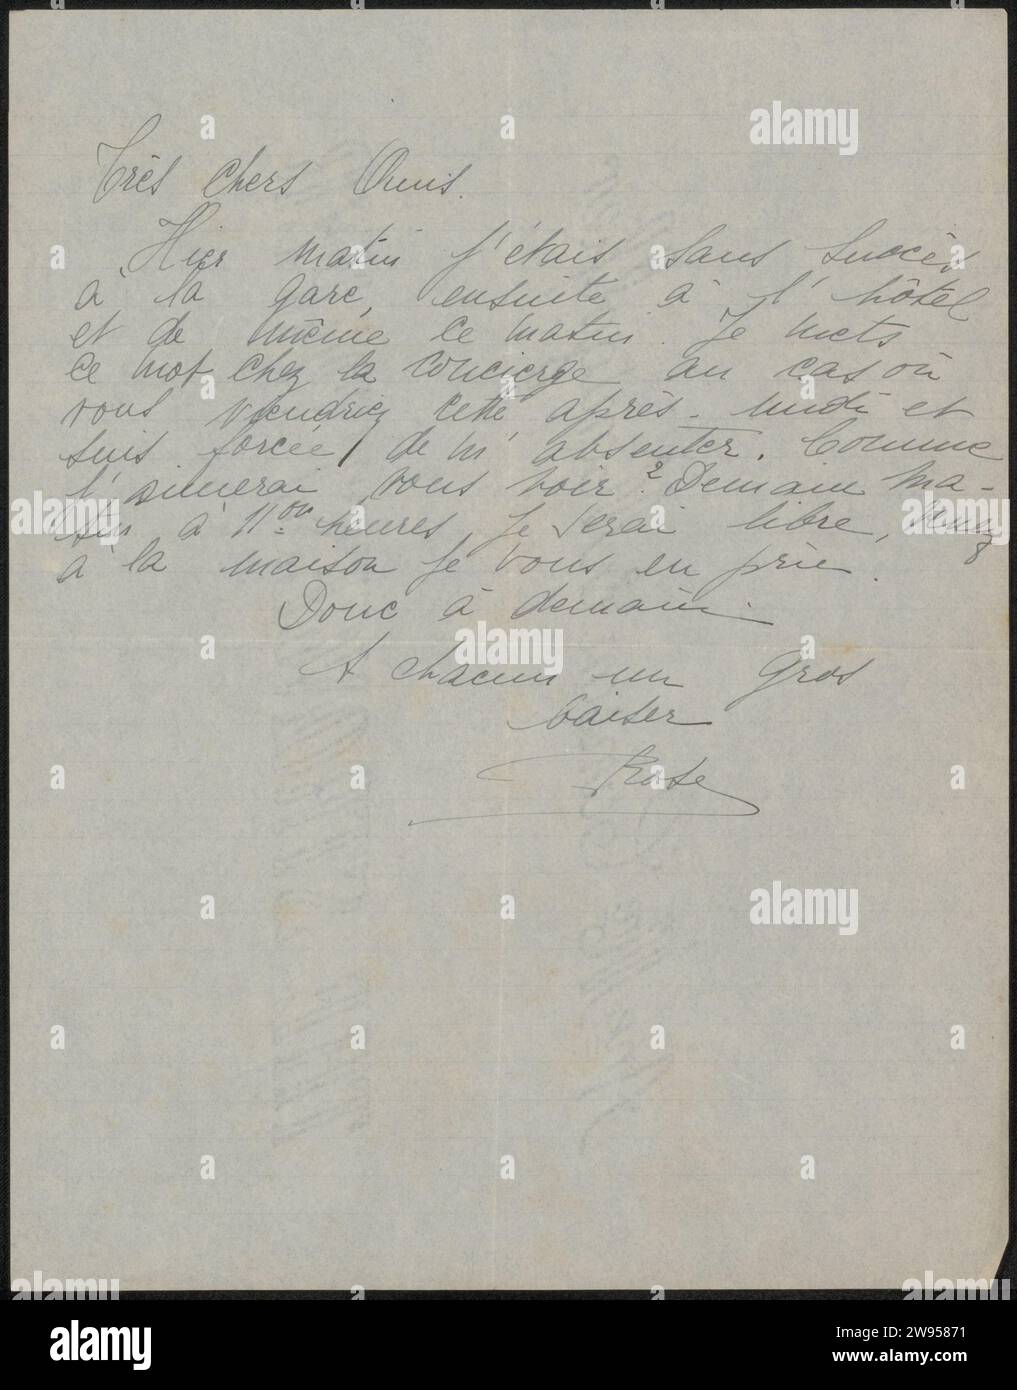 Très chers Amis.
Hier matin j'étais sans succès
à la gare, ensuite à l'hôtel
et de même ce matin. Je mets
ce mot chez la concierge au cas où
vous viendriez cette après-midi et
suis forcée de m'absenter. Comme
j'aimerai vous voir? Demain ma-
tin à 11 heures je serai libre, venez
à la maison je vous en prie.
Donc à demain.
A chacun un gros
baiser
Rose
alamy
Image ID: 2W95871
www.alamy.com